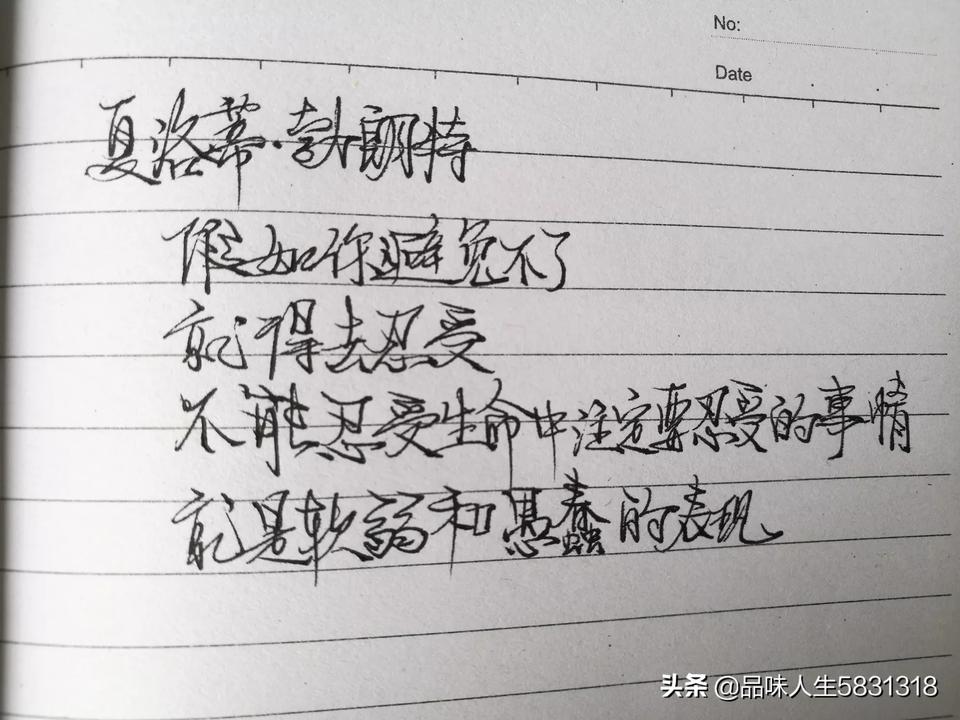 No:
Date
夏洛蒂·勃朗特
假如你避免不了
就得去忍受
不能忍受生命中注定要忍受的事情
就是软弱和愚蠢的表现
头条 @品味人生5831318